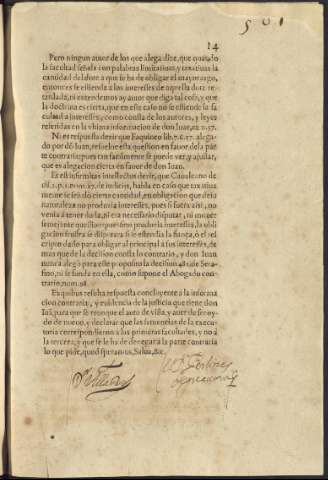 501
14
Pero ningun autor de los que alega dize, que quando
la facultad señala con palabras limitatiuas, y taxatiuas la
cantidad del dote a que se ha de obligar el mayorazgo,
entonces se estienda a los interesses de aquella dote re-
tardada, ni entendemos ay autor que diga tal cosa, y que
la doctrina es cierta, que en esse caso no se estiende la fa
cultad a interesses, como consta de los autores, y leyes
referidas en la vltima informacion de don Iuan,
Ni es respuesta dezir que alle-
gado por dõ Iuan, resuelue esta question en fauor de la par
te contraria, pues tan facilmente se puede ver, y ajustar,
que es alegacion cierta en fauor de don Iuan.
de iudicijs, habla en caso que taxatiua
mente se señalò cierta cantidad, en obligacion que de su
naturaleza no produzia interesses, pues si fuera assi, no
venia a tener duda, ni era necessario disputar, ni mouer
semejante question: pues sino produzia interesses, la obli-
gacion frustra se disputa si se estendia la fiança,
para obligar al principal a sus interesses, de
mas que de la decision consta lo contrario, y don Iuan
nunca alegò para este proposito la decision de Sera-
fino, ni se funda en ella, como supone el Abogado con-
trario, num.
Ex quibus resulta respuesta concluyente a la informa
cion contraria, y euidencia de la justicia que tiene don
Iuã, para que se reuoque el auto de vista, y autos prouey-
do de nueuo, y declarar que las sentencias de la execu-
toria correspondieron a las primeras facultades, y no a
la tercera, y que se le ha de denegar a la parte contraria
lo que pide, quod speramus, Salua, &c.